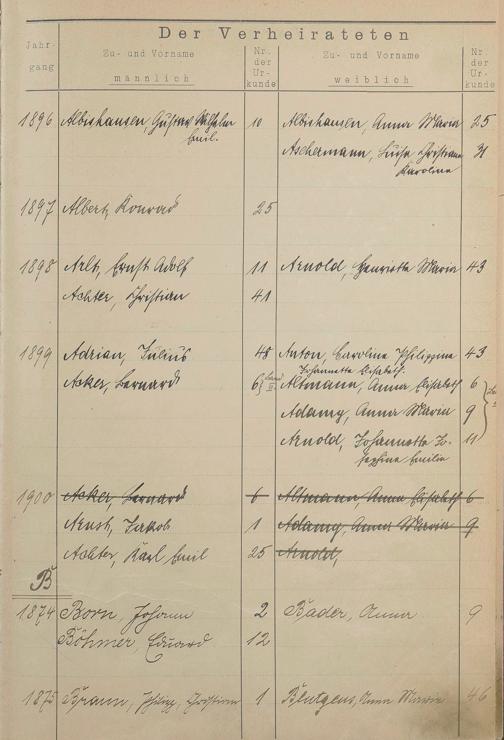 Der Verheirateten
Jahr- Zu- und Vorname Nr. Zu- und Vorname Nr.
gang männlich der weiblich der
Ur- Ur-
kunde kunde
1896 Albishausen, Gustav Wilhelm 10 Albishausen, Anna Maria 25
Emil. Aschermann, Luise Christiane 31
Karoline
1897 Albert, Konrad 25
1898 Arlt, Ernst Adolf 11 Arnold, Henriette Maria 43
Achter, Christian 41
1899 Adrian, Julius 48 Anton, Caroline Philippine 43
Johannette Elisabeth.
Acker, Bernard 6 Altmann, Anna Elisabeth 6
Adamy, Anna Maria 9
Arnold, Johannette Jo- 11
sephine Emilie
1900 Acker, Bernard 6 Altmann, Anna Elisabeth 6
Ernst, Jakob 1 Adamy, Anna Maria 9
Achter, Karl Emil 25 Arnold,
B
1874 Born, Johann 2 Bader, Anna 9
Böhmer, Eduard 12
1875 Braun, Christian 1 Blutgens, Anna Maria 46